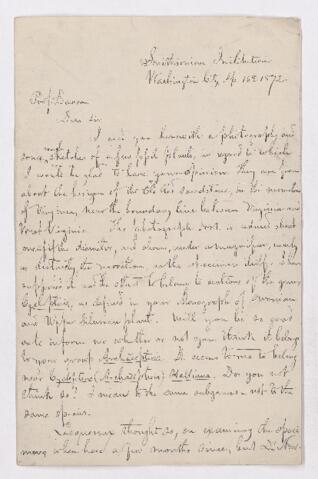 Smithsonian Institution
Washington City, Ap. 16th 1872.
Prof. Dawson
Dear Sir
I send you herewith a photograph and
some rough sketches of a few fossil plants, in regard to which
I would be glad to have your opinion. They are from
about the horizon of the Old Red Sandstone, in the mountains
of Virginia, near the boundary line between Virginia and
West Virginia. The photograph is reduced about
the diameter, and shows, under a magnifier, nearly
as distinctly the nervation as the specimen itself. I have
supposed it and the others to belong to sections of the genus
Cyclopteris, as defined in your Monograph of Devonian
and Upper Silurian plants. Will you be so good
as to inform me whether or not you think it belongs
to your group Archæopteris. It seems to me to belong
near Cyclopteris (Archæopteris) Halliana. Do you not
think so? I mean to the same subgenus, not to the
same species.
Lesquereux thought so, on examining the speci-
mens when here a few months since, but Dr. New-